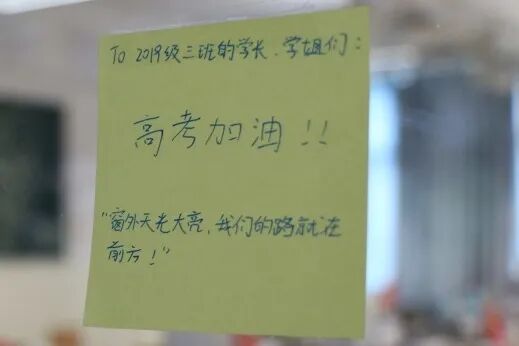 To 2019级三班的学长、学姐们：
高考加油！！
“窗外天光大亮，我们的路就在
前方！”